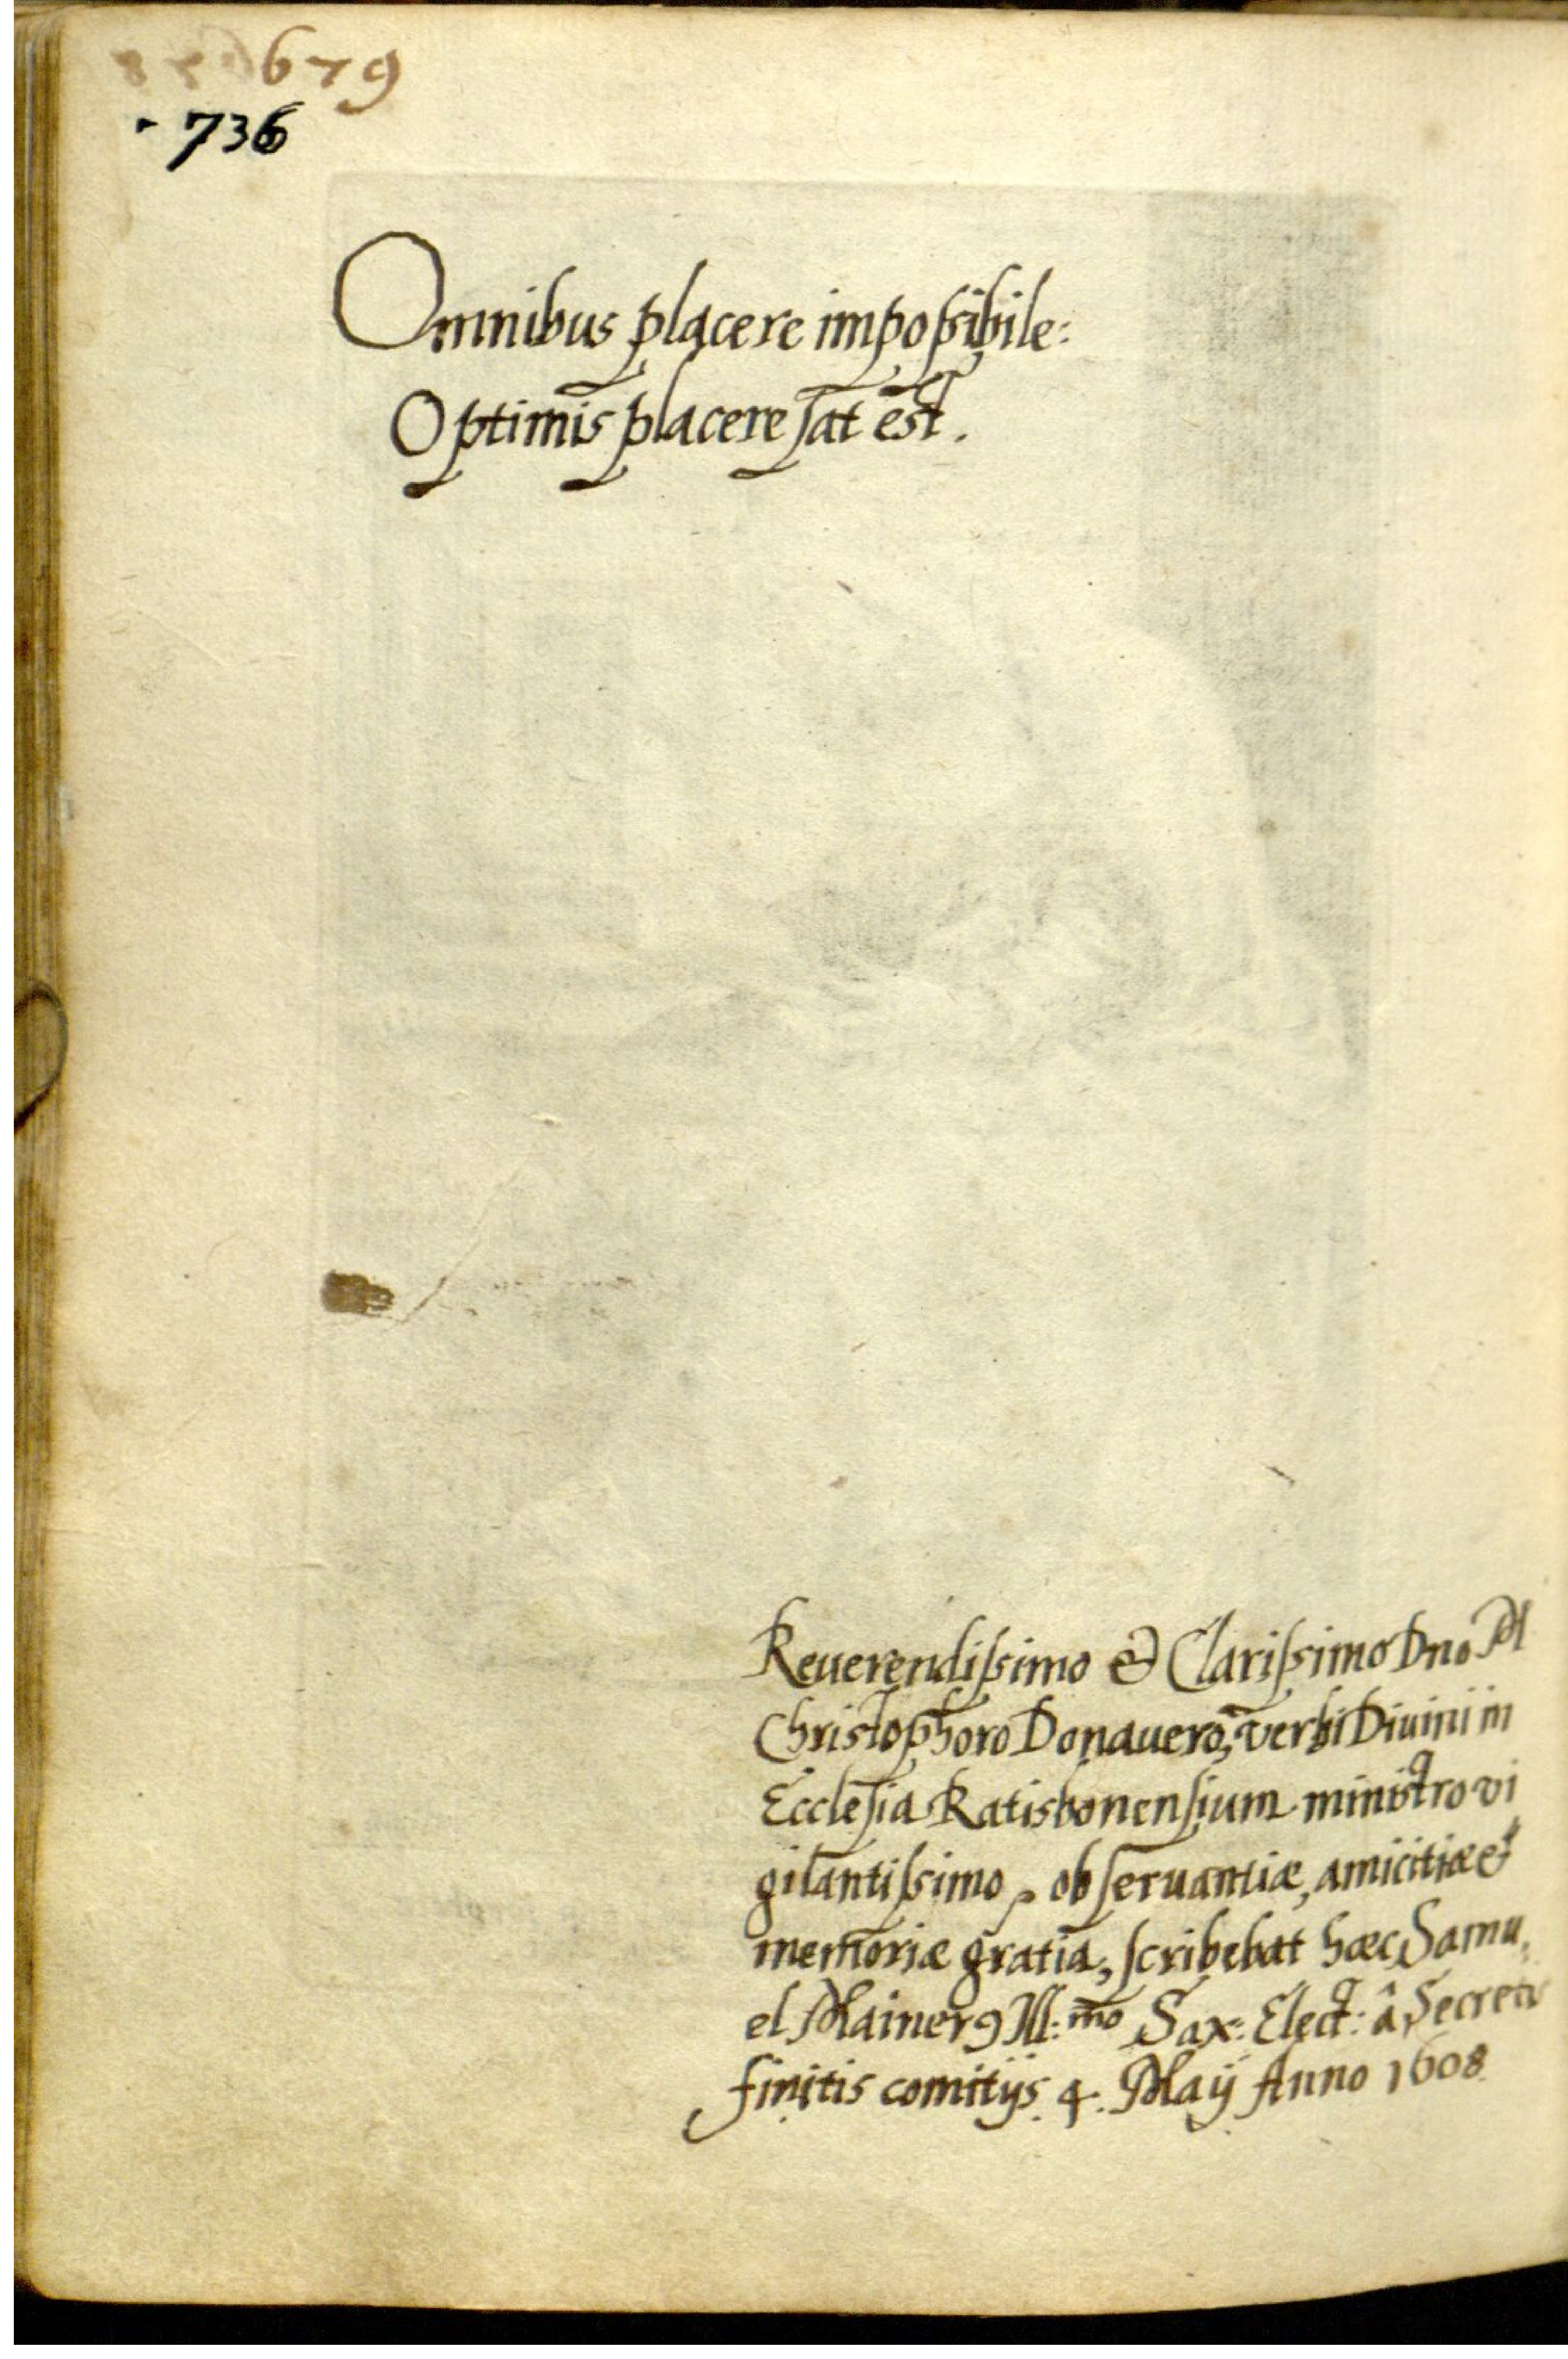 679
736
Omnibus placere impoſsibile:
Optimis placere ſat est.
Reuerendiſsimo & Clariſsimo Dno M
Christophoro Donauero, verbi Diuini in
Eccleſia Ratisbonenſium ministro vi
gilantiſsimo, obſeruantiæ, amicitiæ &
memoriæ gratia, ſcribebat hæc Samu,
el Mainerꝰ Ill:mo Sax: Elect: â Secretis
finitis comitijs. 4. Maij Anno 1608.